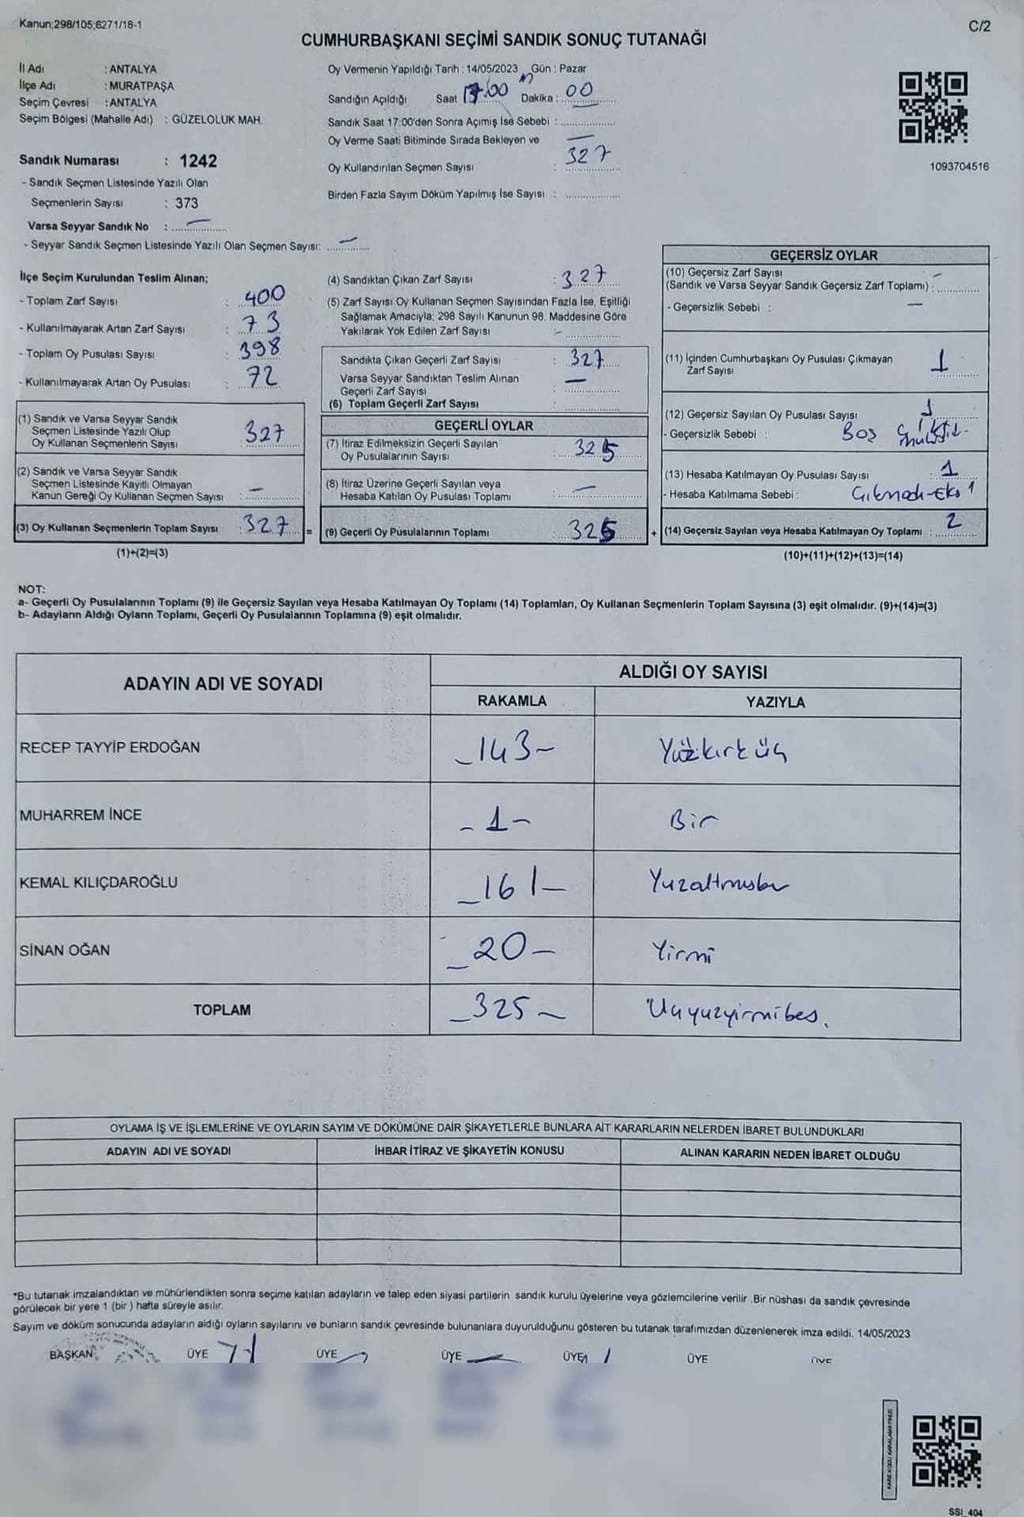 Kanun;298/105;6271/18-1
C/2
CUMHURBAŞKANI SEÇİMİ SANDIK SONUÇ TUTANAĞI
İl Adı : ANTALYA
İlçe Adı : MURATPAŞA
Seçim Çevresi : ANTALYA
Seçim Bölgesi (Mahalle Adı) : GÜZELOLUK MAH.
Sandık Numarası : 1242
- Sandık Seçmen Listesinde Yazılı Olan
Seçmenlerin Sayısı : 373
Varsa Seyyar Sandık No : —
- Seyyar Sandık Seçmen Listesinde Yazılı Olan Seçmen Sayısı: —
Oy Vermenin Yapıldığı Tarih : 14/05/2023 Gün : Pazar
Sandığın Açıldığı Saat 17:00 Dakika : 00
Sandık Saat 17:00'den Sonra Açımış İse Sebebi : —
Oy Verme Saati Bitiminde Sırada Bekleyen ve
Oy Kullandırılan Seçmen Sayısı : 327
Birden Fazla Sayım Döküm Yapılmış İse Sayısı :
1093704516
İlçe Seçim Kurulundan Teslim Alınan;
- Toplam Zarf Sayısı : 400
- Kullanılmayarak Artan Zarf Sayısı : 73
- Toplam Oy Pusulası Sayısı : 398
- Kullanılmayarak Artan Oy Pusulası : 72
(1) Sandık ve Varsa Seyyar Sandık
Seçmen Listesinde Yazılı Olup
Oy Kullanan Seçmenlerin Sayısı : 327
(2) Sandık ve Varsa Seyyar Sandık
Seçmen Listesinde Kayıtlı Olmayan
Kanun Gereği Oy Kullanan Seçmen Sayısı : —
(3) Oy Kullanan Seçmenlerin Toplam Sayısı : 327 =
(1)+(2)=(3)
(4) Sandıktan Çıkan Zarf Sayısı : 327
(5) Zarf Sayısı Oy Kullanan Seçmen Sayısından Fazla İse, Eşitliği
Sağlamak Amacıyla; 298 Sayılı Kanunun 98. Maddesine Göre
Yakılarak Yok Edilen Zarf Sayısı : —
Sandıkta Çıkan Geçerli Zarf Sayısı : 327
Varsa Seyyar Sandıktan Teslim Alınan
Geçerli Zarf Sayısı : —
(6) Toplam Geçerli Zarf Sayısı :
GEÇERLİ OYLAR
(7) İtiraz Edilmeksizin Geçerli Sayılan
Oy Pusulalarının Sayısı : 325
(8) İtiraz Üzerine Geçerli Sayılan veya
Hesaba Katılan Oy Pusulası Toplamı : —
(9) Geçerli Oy Pusulalarının Toplamı : 325 +
GEÇERSİZ OYLAR
(10) Geçersiz Zarf Sayısı
(Sandık ve Varsa Seyyar Sandık Geçersiz Zarf Toplamı) : —
- Geçersizlik Sebebi : —
(11) İçinden Cumhurbaşkanı Oy Pusulası Çıkmayan
Zarf Sayısı : 1
(12) Geçersiz Sayılan Oy Pusulası Sayısı : 1
- Geçersizlik Sebebi : Boş
(13) Hesaba Katılmayan Oy Pusulası Sayısı : 1
- Hesaba Katılmama Sebebi : Çıkmadı-Eks 1
(14) Geçersiz Sayılan veya Hesaba Katılmayan Oy Toplamı : 2
(10)+(11)+(12)+(13)=(14)
NOT:
a- Geçerli Oy Pusulalarının Toplamı (9) ile Geçersiz Sayılan veya Hesaba Katılmayan Oy Toplamı (14) Toplamları, Oy Kullanan Seçmenlerin Toplam Sayısına (3) eşit olmalıdır. (9)+(14)=(3)
b- Adayların Aldığı Oyların Toplamı, Geçerli Oy Pusulalarının Toplamına (9) eşit olmalıdır.
ADAYIN ADI VE SOYADI
ALDIĞI OY SAYISI
RAKAMLA
YAZIYLA
RECEP TAYYİP ERDOĞAN -143- Yüzkırküç
MUHARREM İNCE -1- Bir
KEMAL KILIÇDAROĞLU -161- Yuzaltmısbır
SİNAN OĞAN -20- Yirmi
TOPLAM -325- Üçyuzyirmibes.
OYLAMA İŞ VE İŞLEMLERİNE VE OYLARIN SAYIM VE DÖKÜMÜNE DAİR ŞİKAYETLERLE BUNLARA AİT KARARLARIN NELERDEN İBARET BULUNDUKLARI
ADAYIN ADI VE SOYADI
İHBAR İTİRAZ VE ŞİKAYETİN KONUSU
ALINAN KARARIN NEDEN İBARET OLDUĞU
*Bu tutanak imzalandıktan ve mühürlendikten sonra seçime katılan adayların ve talep eden siyasi partilerin sandık kurulu üyelerine veya gözlemcilerine verilir .Bir nüshası da sandık çevresinde
görülecek bir yere 1 (bir ) hafta süreyle asılır.
Sayım ve döküm sonucunda adayların aldığı oyların sayılarını ve bunların sandık çevresinde bulunanlara duyurulduğunu gösteren bu tutanak tarafımızdan düzenlenerek imza edildi. 14/05/2023
BAŞKAN ÜYE ÜYE ÜYE ÜYE ÜYE ÜYE
SSI_404